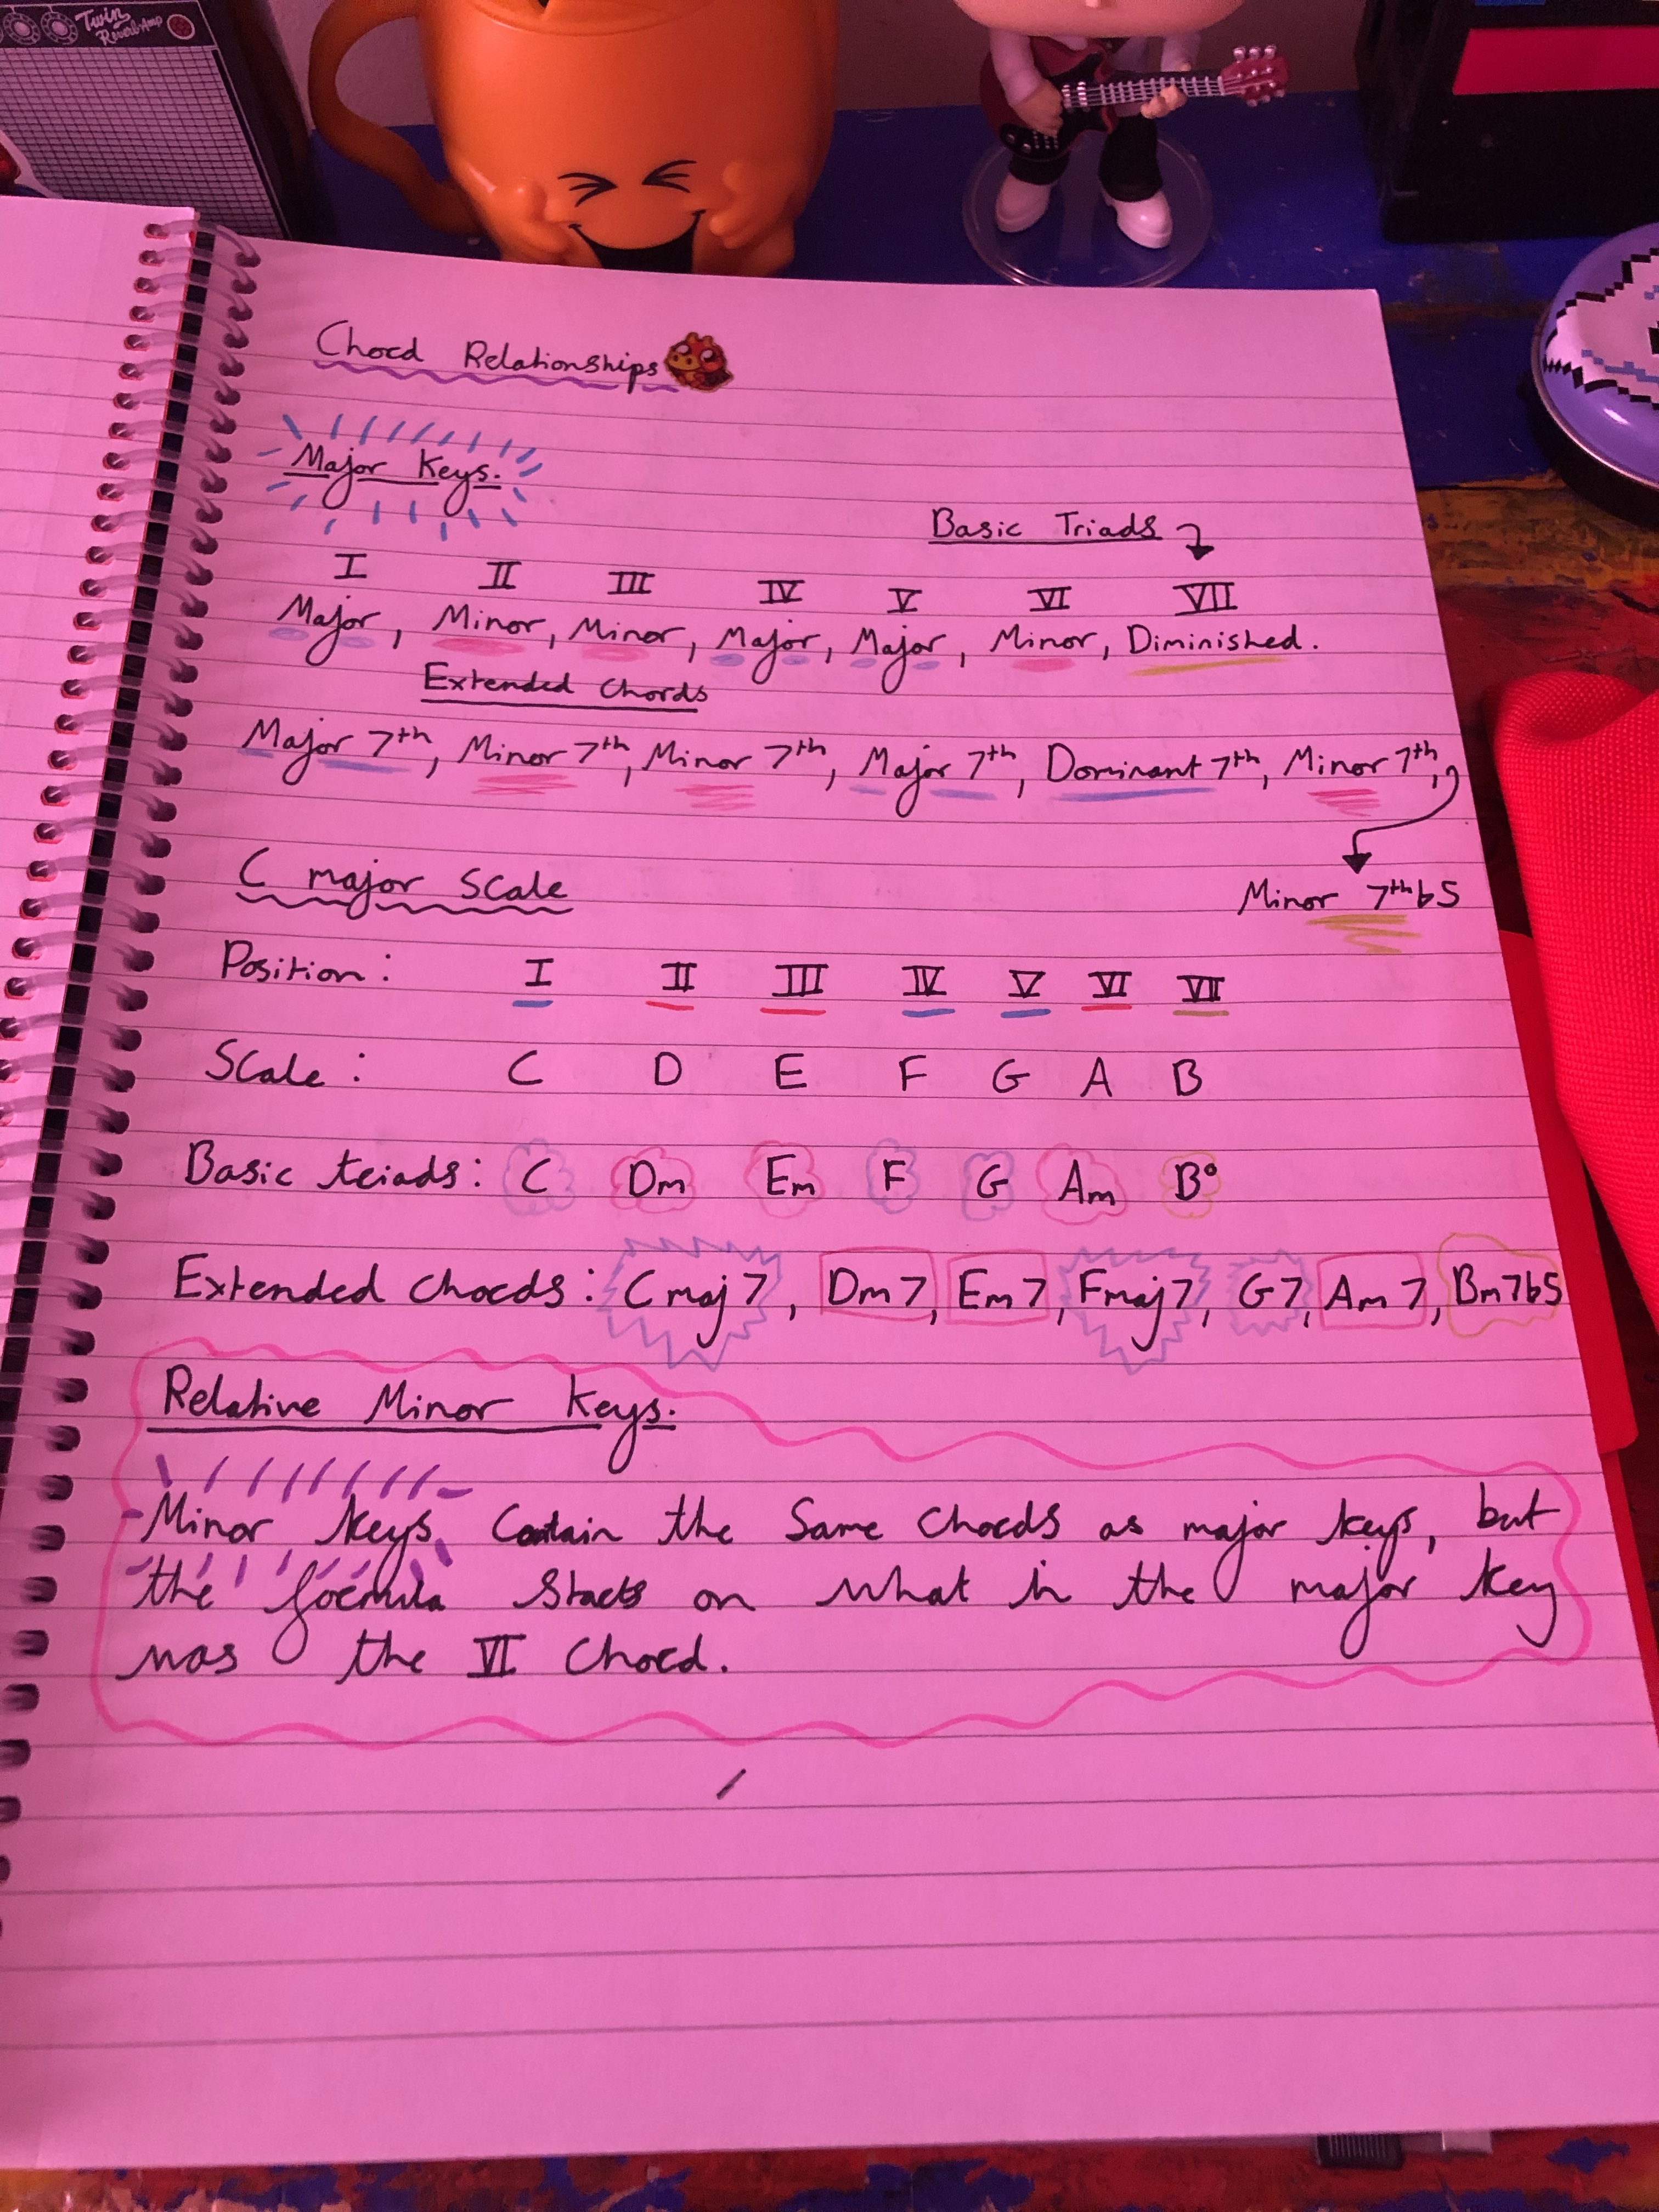 Twin
Reverb Amp
Chord Relationships
Major Keys.
Basic Triads
I II III IV V VI VII
Major, Minor, Minor, Major, Major, Minor, Diminished.
Extended Chords
Major 7th, Minor 7th, Minor 7th, Major 7th, Dominant 7th, Minor 7th,
Minor 7th b5
C major Scale
Position: I II III IV V VI VII
Scale: C D E F G A B
Basic triads: C Dm Em F G Am B°
Extended Chords: Cmaj7, Dm7, Em7, Fmaj7, G7, Am7, Bm7b5
Relative Minor Keys:
Minor keys Contain the Same Chords as major keys, but
the formula Starts on what in the major key
was the VI Chord.